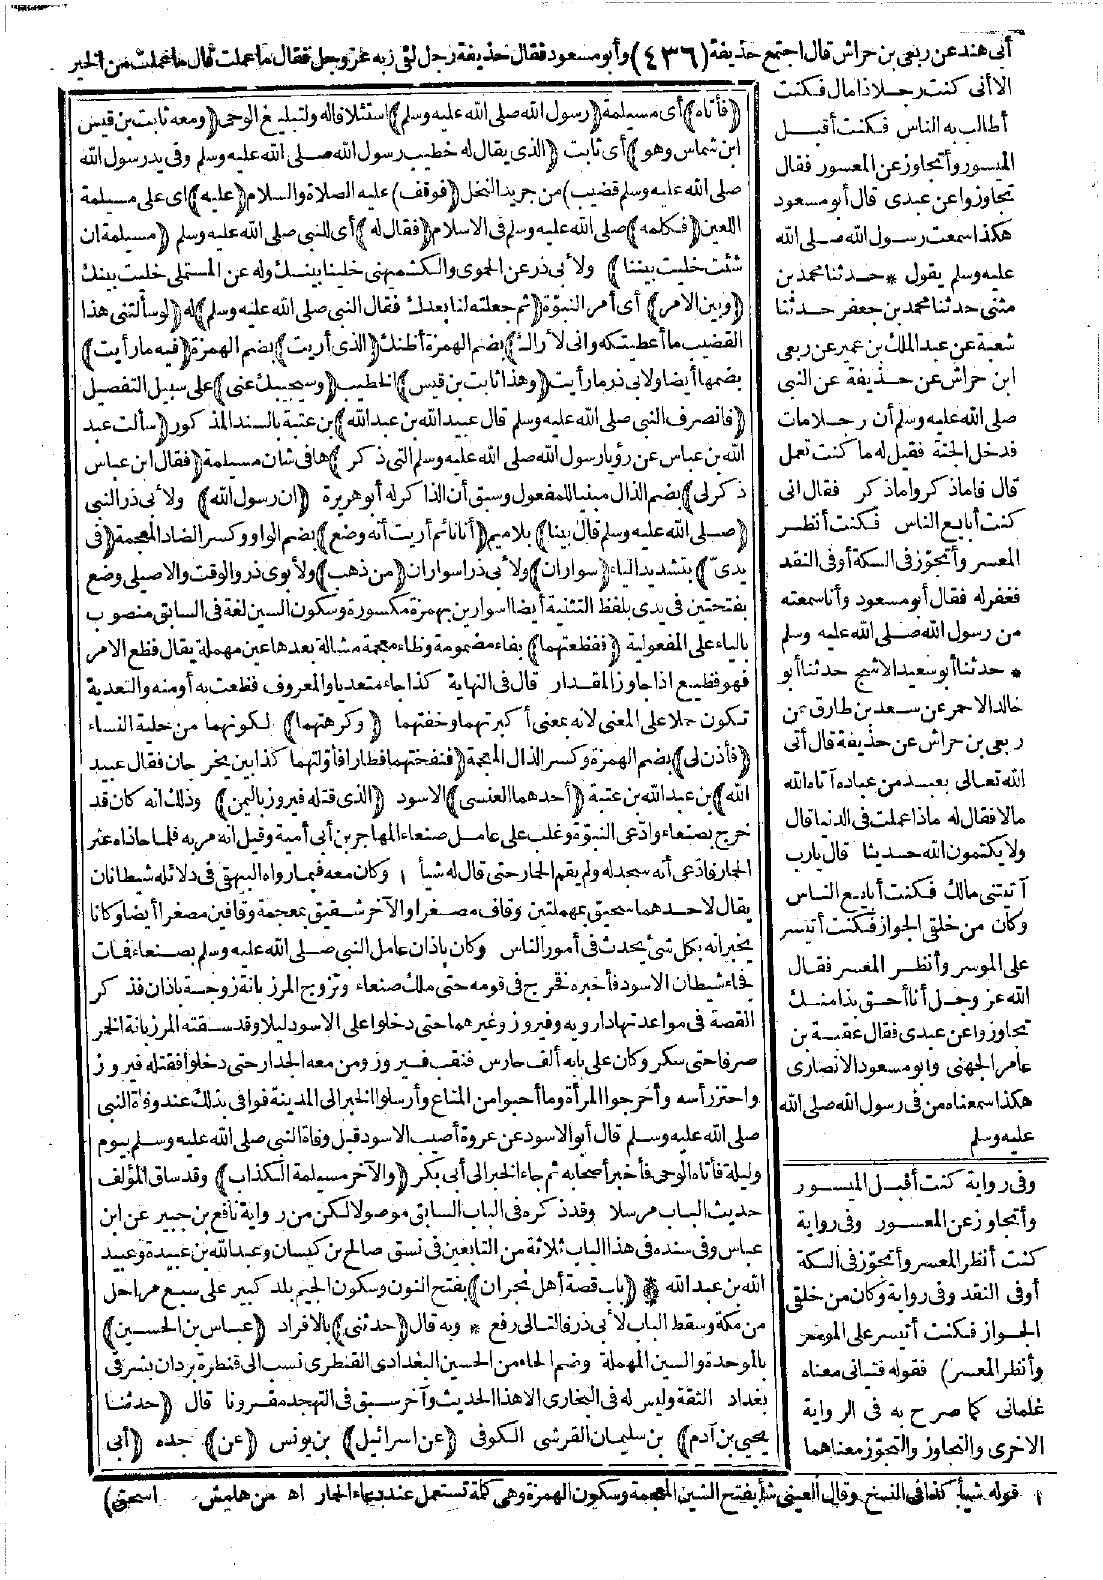 أبى هند عن ربعى بن حراش قال اجتمع حذيفة (٤٣٦) وأبو مسعود فقال حذيفة رجل لقى ربه عز وجل فقال ما عملت قال ما عملت من الخير
الا أنى كنت رجلا ذا مال فكنت
أطالب به الناس فكنت أقبل
الميسور وأتجاوز عن المعسور فقال
تجاوزوا عن عبدى قال أبو مسعود
هكذا سمعت رسول الله صلى الله
عليه وسلم يقول * حدثنا محمد بن
مثنى حدثنا محمد بن جعفر حدثنا
شعبة عن عبد الملك بن عمير عن ربعى
ابن حراش عن حذيفة عن النبى
صلى الله عليه وسلم أن رجلا مات
فدخل الجنة فقيل له ما كنت تعمل
قال فاما ذكر واما ذكر فقال انى
كنت أبايع الناس فكنت أنظر
المعسر وأتجوّز فى السكة أو فى النقد
فغفر له فقال أبو مسعود وأنا سمعته
من رسول الله صلى الله عليه وسلم
* حدثنا أبو سعيد الاشج حدثنا أبو
خالد الاحمر عن سعد بن طارق عن
ربعى بن حراش عن حذيفة قال أتى
الله تعالى بعبد من عباده آتاه الله
مالا فقال له ماذا عملت فى الدنيا قال
ولا يكتمون الله حديثا قال يارب
آتيتنى مالك فكنت أبايع الناس
وكان من خلقى الجواز فكنت أتيسر
على الموسر وأنظر المعسر فقال
الله عز وجل أنا أحق بذا منك
تجاوزوا عن عبدى فقال عقبة بن
عامر الجهنى وأبو مسعود الانصارى
هكذا سمعناه من فى رسول الله صلى الله
عليه وسلم
وفى رواية كنت أقبل الميسور
وأتجاوز عن المعسور وفى رواية
كنت أنظر المعسر وأتجوّز فى السكة
أو فى النقد وفى رواية وكان من خلقى
الجواز فكنت أتيسر على الموسر
وأنظر المعسر) فقوله فتيانى معناه
غلمانى كما صرح به فى الرواية
الاخرى والتجاوز والتجوّز معناهما
(فأتاه) أى مسيلمة (رسول الله صلى الله عليه وسلم) استئلافا له ولتبليغ الوحى (ومعه ثابت بن قيس
ابن شماس وهو) أى ثابت (الذى يقال له خطيب رسول الله صلى الله عليه وسلم وفى يد رسول الله
صلى الله عليه وسلم قضيب) من جريد النخل (فوقف) عليه الصلاة والسلام (عليه) اى على مسيلمة
اللعين (فكلمه) صلى الله عليه وسلم فى الاسلام (فقال له) أى للنبى صلى الله عليه وسلم (مسيلمة ان
شئت خليت بيننا) ولأبى ذر عن الحموى والكشميهنى خلينا بينك وله عن المستملى خليت بينك
(وبين الامر) أى أمر النبوّة (ثم جعلته لنا بعدك فقال النبى صلى الله عليه وسلم) له (لو سألتنى هذا
القضيب ما أعطيتكه وانى لأراك) بضم الهمزة أظنك (الذى أريت) بضم الهمزة (فيه ما رأيت)
بضمها أيضا ولابى ذر ما رأيت (وهذا ثابت بن قيس) الخطيب (وسيجيبك عنى) على سبيل التفصيل
(فانصرف النبى صلى الله عليه وسلم قال عبيد الله بن عبد الله) بن عتبة بالسند المذكور (سألت عبد
الله بن عباس عن رؤيا رسول الله صلى الله عليه وسلم التى ذكر) ها فى شان مسيلمة (فقال ابن عباس
ذكر لى) بضم الذال مبنيا للمفعول وسبق أن الذاكر له أبو هريرة (ان رسول الله) ولأبى ذر النبى
(صلى الله عليه وسلم قال بينا) بلا ميم (أنا نائم أريت أنه وضع) بضم الواو وكسر الضاد المعجمة (فى
يدىّ) بتشديد الياء (سواران) ولأبى ذر اسواران (من ذهب) ولأبوى ذر والوقت والاصيلى وضع
بفتحتين فى يدى بلفظ التثنية أيضا اسوارين بهمزة مكسورة وسكون السين لغة فى السابق منصوب
بالياء على المفعولية (ففظعتهما) بفاء مضمومة وظاء معجمة مشالة بعدها عين مهملة يقال فظع الامر
فهو فظيع اذا جاوز المقدار قال فى النهاية كذا جاء متعديا والمعروف فظعت به أو منه والتعدية
تكون حملا على المعنى لانه بمعنى أكبرتهما وخفتهما (وكرهتهما) لكونهما من حلية النساء
(فأذن لى) بضم الهمزة وكسر الذال المعجمة (فنفختهما فطارا فأولتهما كذابين يخرجان فقال عبيد
الله) بن عبد الله بن عتبة (أحدهما العنسى) الاسود (الذى قتله فيروز باليمن) وذلك انه كان قد
خرج بصنعاء وادّعى النبوّة وغلب على عامل صنعاء المهاجر بن أبى أمية وقيل انه مر به فلما حاذاه عثر
الحمار فادّعى أنه سجد له ولم يقم الحمار حتى قال له شيأ ١ وكان معه فيما رواه البيهقى فى دلائله شيطانان
يقال لاحدهما سحيق بمهملتين وقاف مصغرا والآخر شقيق بمعجمة وقافين مصغرا أيضا وكانا
يخبرانه بكل شىء يحدث فى أمور الناس وكان باذان عامل النبى صلى الله عليه وسلم بصنعاء فمات
فجاء شيطان الاسود فأخبره فخرج فى قومه حتى ملك صنعاء وتزوج المرزبانة زوجة باذان فذكر
القصة فى مواعدتها دادويه وفيروز وغيرهما حتى دخلوا على الاسود ليلا وقد سقته المرزبانة الخمر
صرفا حتى سكر وكان على بابه ألف حارس فنقب فيروز ومن معه الجدار حتى دخلوا فقتله فيروز
واحتز رأسه وأخرجوا المرأة وما أحبوا من المتاع وأرسلوا الخبر الى المدينة فوافى بذلك عند وفاة النبى
صلى الله عليه وسلم قال أبو الاسود عن عروة أصيب الاسود قبل وفاة النبى صلى الله عليه وسلم بيوم
وليلة فأتاه الوحى فأخبر أصحابه ثم جاء الخبر الى أبى بكر (والآخر مسيلمة الكذاب) وقد ساق المؤلف
حديث الباب مرسلا وقد ذكره فى الباب السابق موصولا لكن من رواية نافع بن جبير عن ابن
عباس وفى سنده فى هذا الباب ثلاثة من التابعين فى نسق صالح بن كيسان وعبد الله بن عبيدة وعبيد
الله بن عبد الله * (باب قصة أهل نجران) بفتح النون وسكون الجيم بلد كبير على سبع مراحل
من مكة وسقط الباب لأبى ذر فالتالى رفع * وبه قال (حدثنى) بالافراد (عباس بن الحسين)
بالموحدة والسين المهملة وضم الحاء من الحسين البغدادى القنطرى نسب الى قنطرة بردان بشرقى
بغداد الثقة وليس له فى البخارى الا هذا الحديث وآخر سبق فى التهجد مقرونا قال (حدثنا
يحيى بن آدم) بن سليمان القرشى الكوفى (عن اسرائيل) بن يونس (عن) جده (أبى
١ قوله شيأ كذا فى النسخ وقال العينى شأ بفتح الشين المعجمة وسكون الهمزة وهى كلمة تستعمل عند دعاء الحمار اه من هامش اسحق)